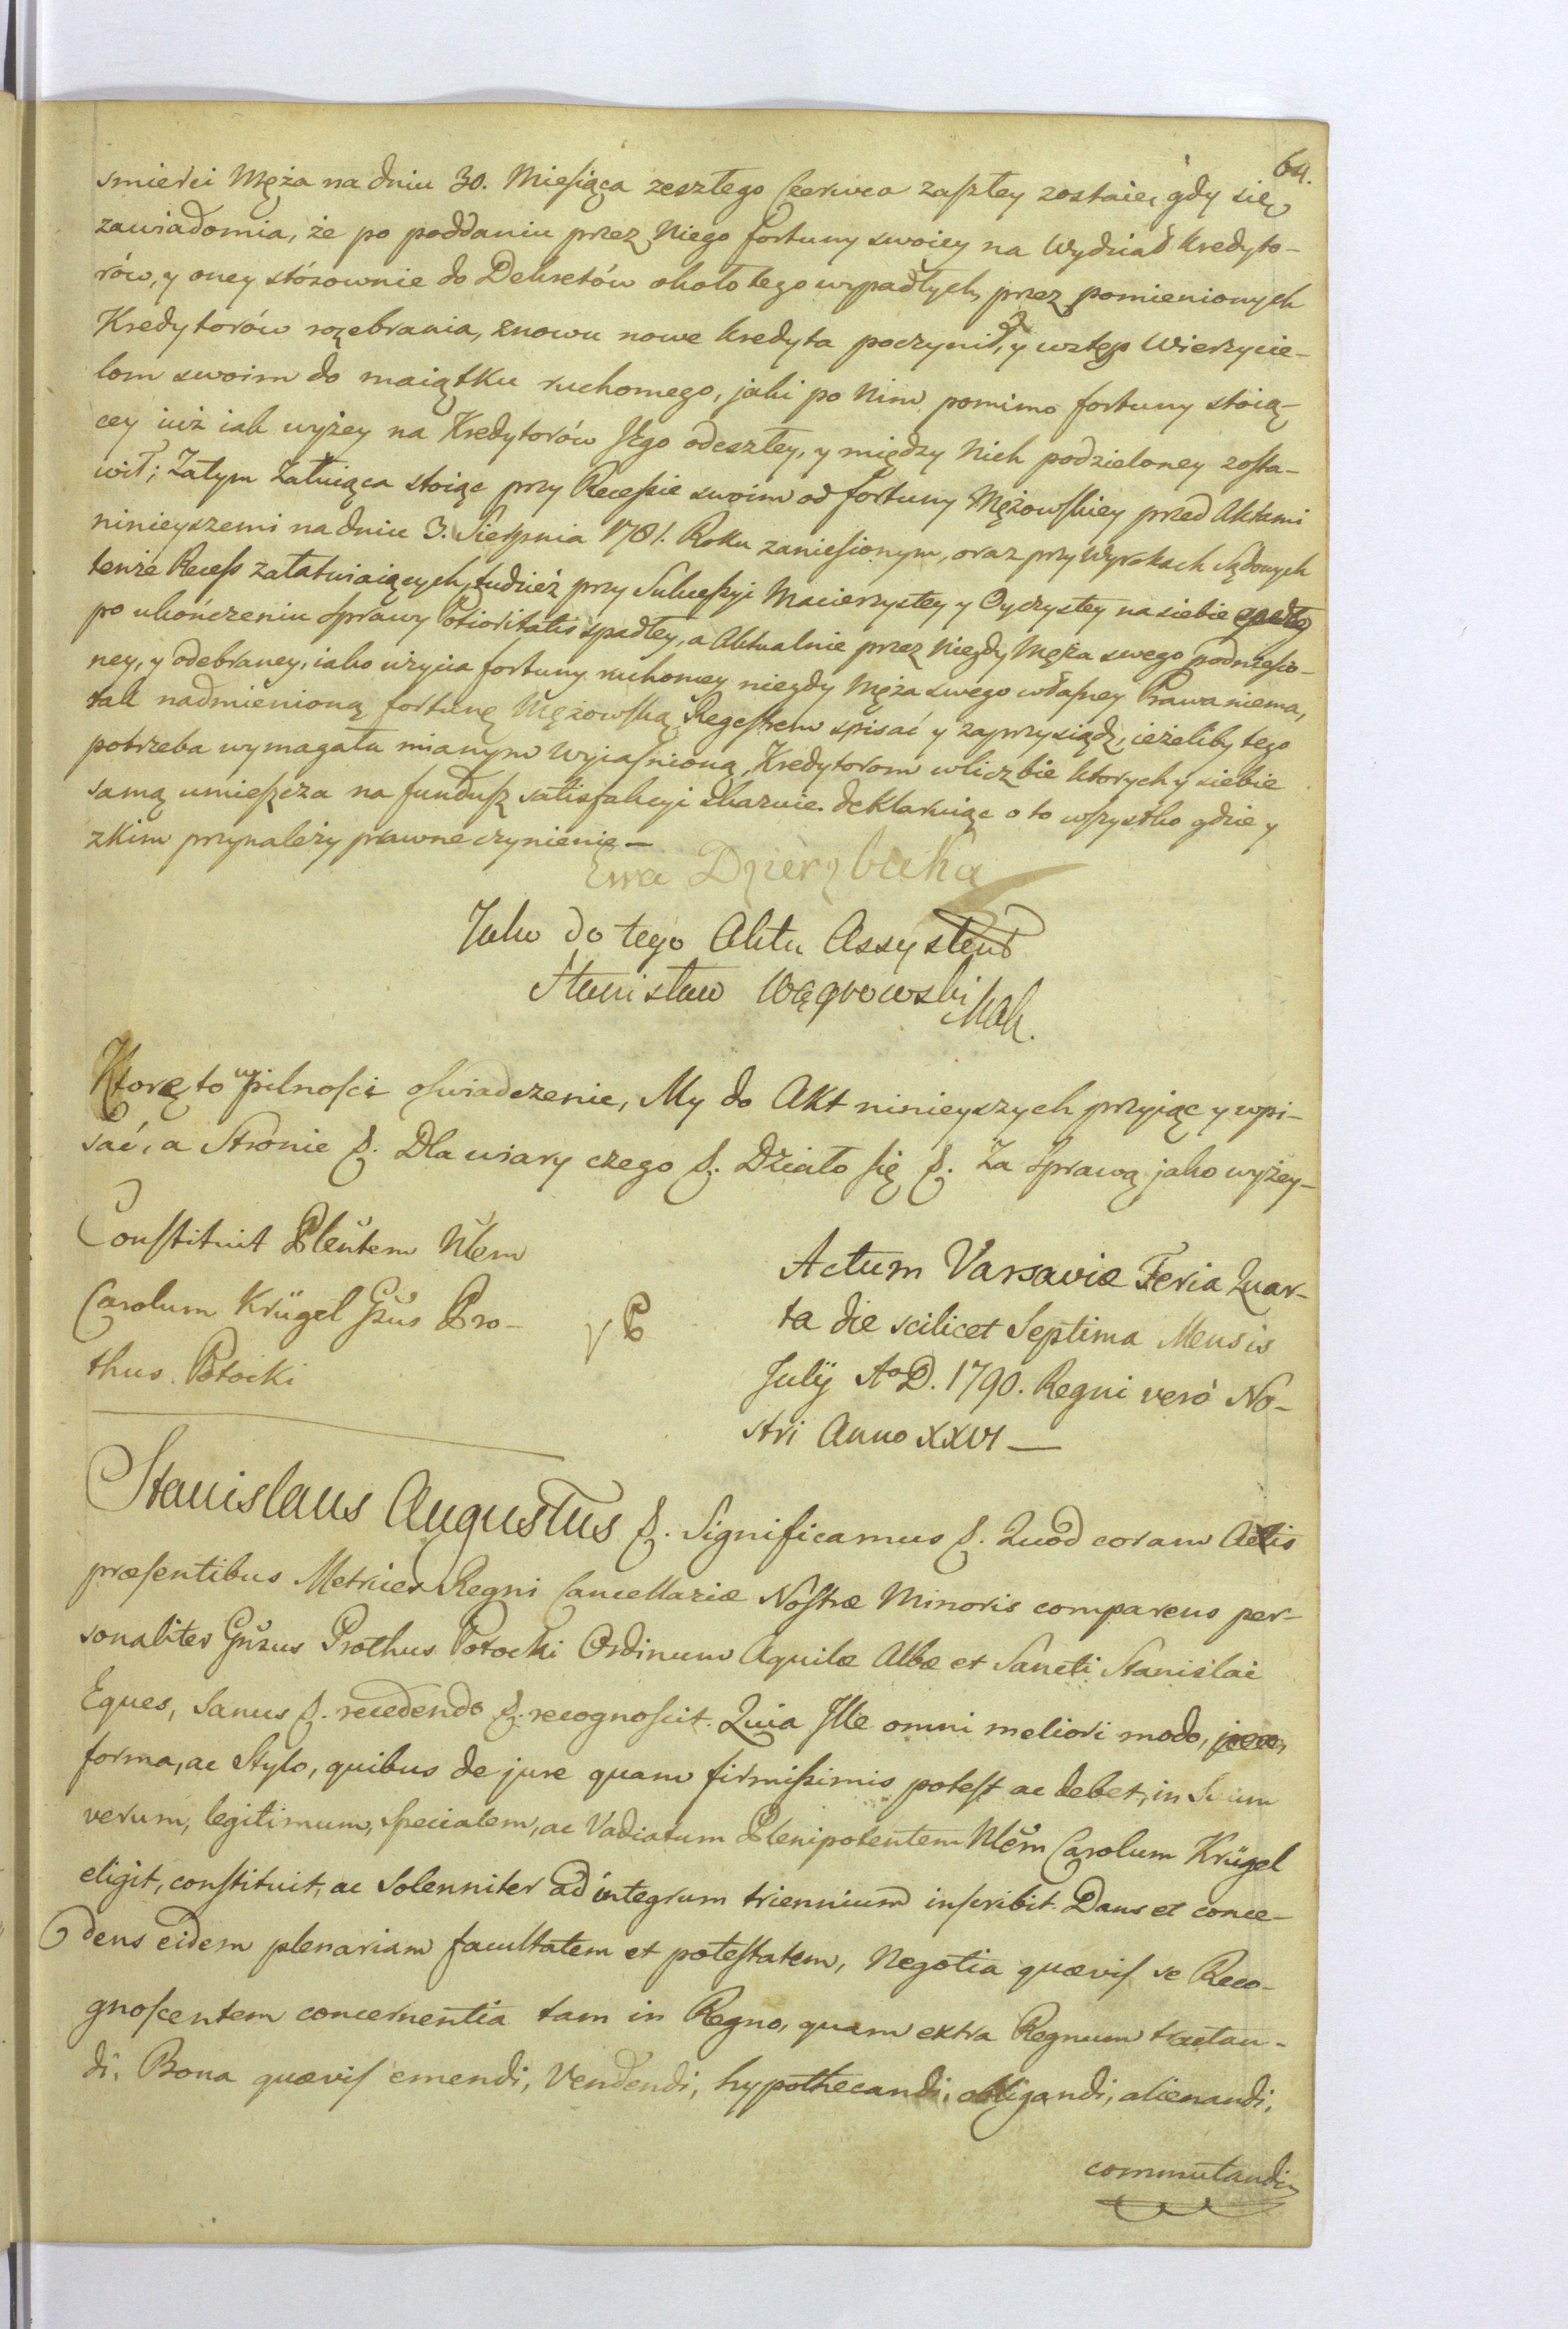 64.
smierci Męża na dniu 30. Miesiąca zeszłego Czerwca zaszłey zostaie, gdy się
zawiadomia, że po poddaniu przez Niego fortuny swoiey na Wydział Kredyto-
rów, y oney stósownie do Dekretów około tego wypadłych, przez pomienionych
Kredytorów rozebrania, znowu nowe kredyta poczynił, y wstęp Wierzycie-
lom swoim do maiątku ruchomego, jaki po Nim pomimo fortuny stoią-
cey iuż iak wyżey na Kredytorów Jego odeszłey, y między Nich podzieloney zosta-
wił; Zatym Żałuiąca stoiąc przy Recessie swoim od fortuny Mężowskiey przed Aktami
ninieyszemi na dniu 3. Sierpnia 1781. Roku zaniesionym, oraz przy Wyrokach Sądowych
tenże Recess załatwiaiących, tudzież przy Sukcessyi Macierzystey y Oyczystey na siebie
po ukończeniu Sprawy Potioritatis spadłey, a Aktualnie przez Niegdy Męża swego podniesio-
ney, y odebraney, iako użycia fortuny ruchomey niegdy Męża swego własney Prawa niema,
tak nadmienioną fortunę Mężowską Regestrem spisać y zaprzysiądz, ieżeliby tego
potrzeba wymagała mianym wyiasnioną, Kredytorom w liczbie ktorych y siebie
samą umieszcza na fundusz satisfakcyi skazuie. deklaruiąc o to wszystko gdzie y
zkim przynależy prawne czynienie —
Ewa Dzierzbicka
Jako do tego Aktu Assystent
Stanisław Wągrowski Mak.
Ktorę to w pilności oswiadczenie, My do Akt ninieyszych przyiąc y wpi-
sać, a Stronie &. Dla wiary czego &. Działo się &. Za Sprawą jako wyżey —
Constituit Plentem Nlem
Carolum Krügel Gsus Pro-
thus Potocki
Actum Varsaviæ Feria Quar-
ta die scilicet Septima Mensis
Julÿ Ao D. 1790. Regni verò No-
stri Anno XXVI —
Stanislaus Augustus &. Significamus &. Quòd coram Actis
præsentibus Metrices Regni Cancellariæ Nostræ Minoris comparens per-
sonaliter Gnsus Prothus Potocki Ordinum Aquilæ Albæ et Sancti Stanislai
Eques, Sanus &. recedendo &. recognoscit. Quia Ille omni meliori modo,
forma, ac Stylo, quibus de jure quam firmissimis potest ac debet, in Suum
verum, legitimum, specialem, ac Vadiatum Plenipotentem Nlem Carolum Krügel
eligit, constituit, ac Solenniter ad integrum triennium inscribit. Dans et conce-
dens eidem plenariam facultatem et potestatem, Negotia quævis se Reco-
gnoscentem concernentia tam in Regno, quam extra Regnum tractan-
di, Bona quævis emendi, Vendendi, hypothecandi, obligandi, alienandi,
commutandi,